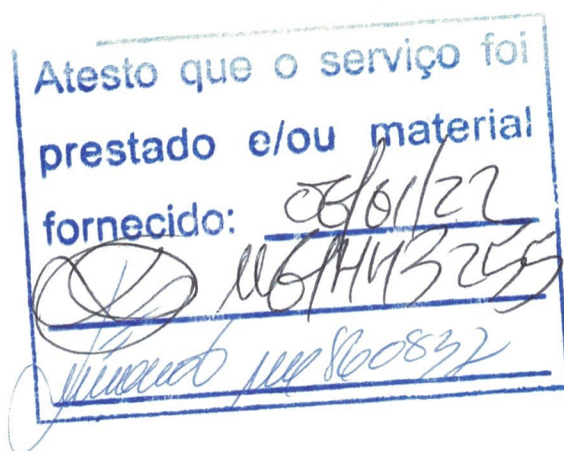 Atesto que o serviço foi
prestado e/ou material
fornecido: 06/01/22
860832